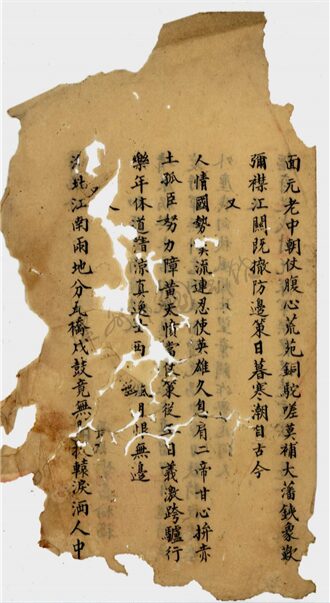 面元老中朝仗腹心荒苑銅駝嗟莫補大藩鐵象歎
彌襟江關既撤防邊策日暮寒潮自古今
又
人情國勢流連忍使英雄久息肩二帝甘心拚赤
土孤臣努力障黃天憤當仗策從日義激跨驢行
樂年休道清涼真逸西月恨無邊
又
北江南兩地分瓦橋戍鼓竟無轅淚洒人中